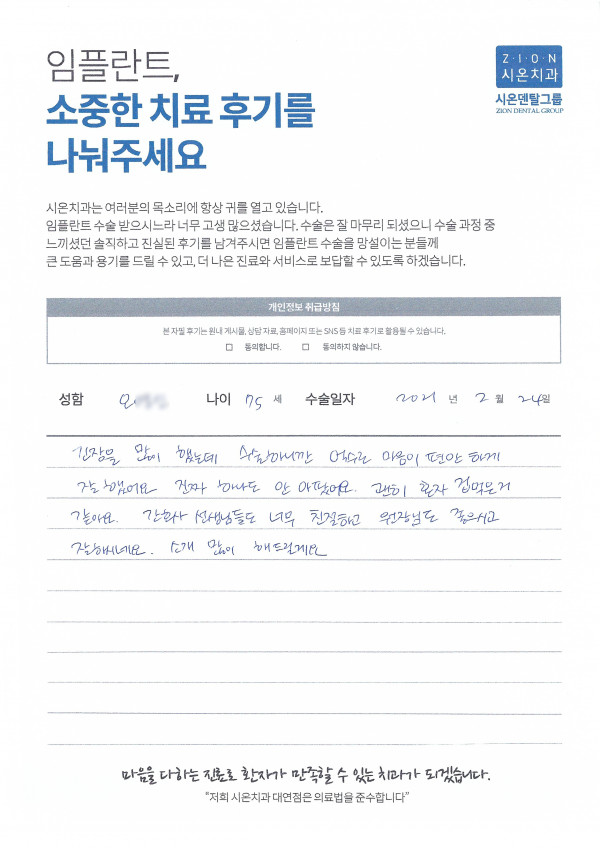 임플란트,
소중한 치료 후기를
나눠주세요
Z·I·O·N
시온치과
시온덴탈그룹
ZION DENTAL GROUP
시온치과는 여러분의 목소리에 항상 귀를 열고 있습니다.
임플란트 수술 받으시느라 너무 고생 많으셨습니다. 수술은 잘 마무리 되셨으니 수술 과정 중
느끼셨던 솔직하고 진실된 후기를 남겨주시면 임플란트 수술을 망설이는 분들께
큰 도움과 용기를 드릴 수 있고, 더 나은 진료와 서비스로 보답할 수 있도록 하겠습니다.
개인정보 취급방침
본 자필 후기는 원내 게시물, 상담 자료, 홈페이지 또는 SNS 등 치료 후기로 활용될 수 있습니다.
□ 동의합니다. □ 동의하지 않습니다.
성함 오 나이 75 세 수술일자 2021 년 2 월 24일
긴장을 많이 했는데 수술하니깐 마음이 편안하게
잘 했어요 진짜 하나도 안 아팠어요. 괜히 혼자 겁먹은거
같아요. 간호사 선생님들도 너무 친절하고 원장님도 좋으시고
잘하시네요. 소개 많이 해드릴게요
마음을 다하는 진료로 환자가 만족할 수 있는 치과가 되겠습니다.
"저희 시온치과 대연점은 의료법을 준수합니다"